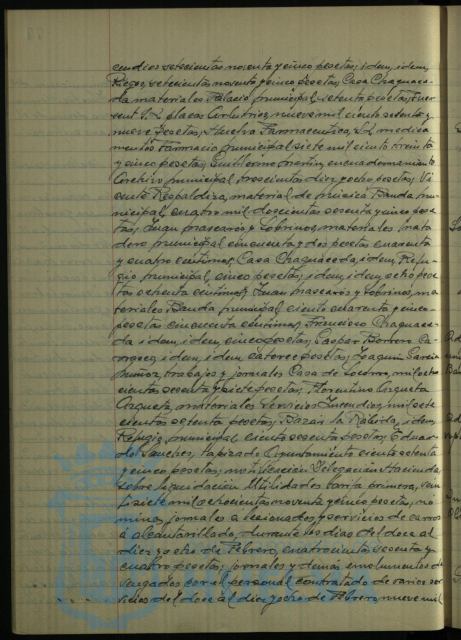 cendios setecientas noventa y cinco pesetas; idem, idem,
Riego, setecientas noventa y cinco pesetas; Casa Chaguace-
da materiales Palacio municipal, setenta pesetas;
S.L. placas Arbitrios, nueve mil ciento setenta y
nueve pesetas; Huelva Farmaceutica, S.L. medica-
mentos Farmacia municipal siete mil ciento treinta
y cinco pesetas; Guillermo Martin, encuadernamiento
Archivo municipal trescientas diez y ocho pesetas; Vi-
cente Respaldiza, material de música Banda mu-
nicipal, cuatro mil doscientas sesenta y cinco pese-
tas; Juan Mascarós y Sobrinos, materiales Mata-
dero municipal cincuenta y dos pesetas cuarenta
y cuatro centimos; Casa Chaguaceda, idem, Refu-
gio municipal, cinco pesetas; idem, idem, ocho pese-
tas ochenta centimos; Juan Mascarós y Sobrinos, ma-
teriales Banda municipal ciento cuarenta y cinco
pesetas cincuenta centimos; Francisco Chaguace-
da idem, idem, cinco pesetas; Gaspar Borrero
idem, idem catorce pesetas; Joaquin Garcia
Muñoz, trabajos y jornales Casa de Socorro, mil
cientas sesenta y siete pesetas; Florentino Azqueta
Azqueta, materiales Servicios Incendios, mil
cientas setenta pesetas; Bazar la Rábida, idem,
Refugio municipal ciento sesenta pesetas; Eduar-
do Sanches, tapizado Ayuntamiento ciento setenta
y cinco pesetas; notificación Delegación Hacienda
sobre liquidación Utilidades tarifa primera, vein-
tisiete mil ochocientas noventa y cinco pesetas; nó-
mina, jornales a lesionados y servicios de carros
a alcantarillado, durante los dias del doce al
diez y ocho de Febrero, cuatrocientas sesenta y
cuatro pesetas; jornales y demás emolumentos de-
vengados por el personal contratado de varios ser-
vicios del doce al diez y ocho de Febrero, nueve mil